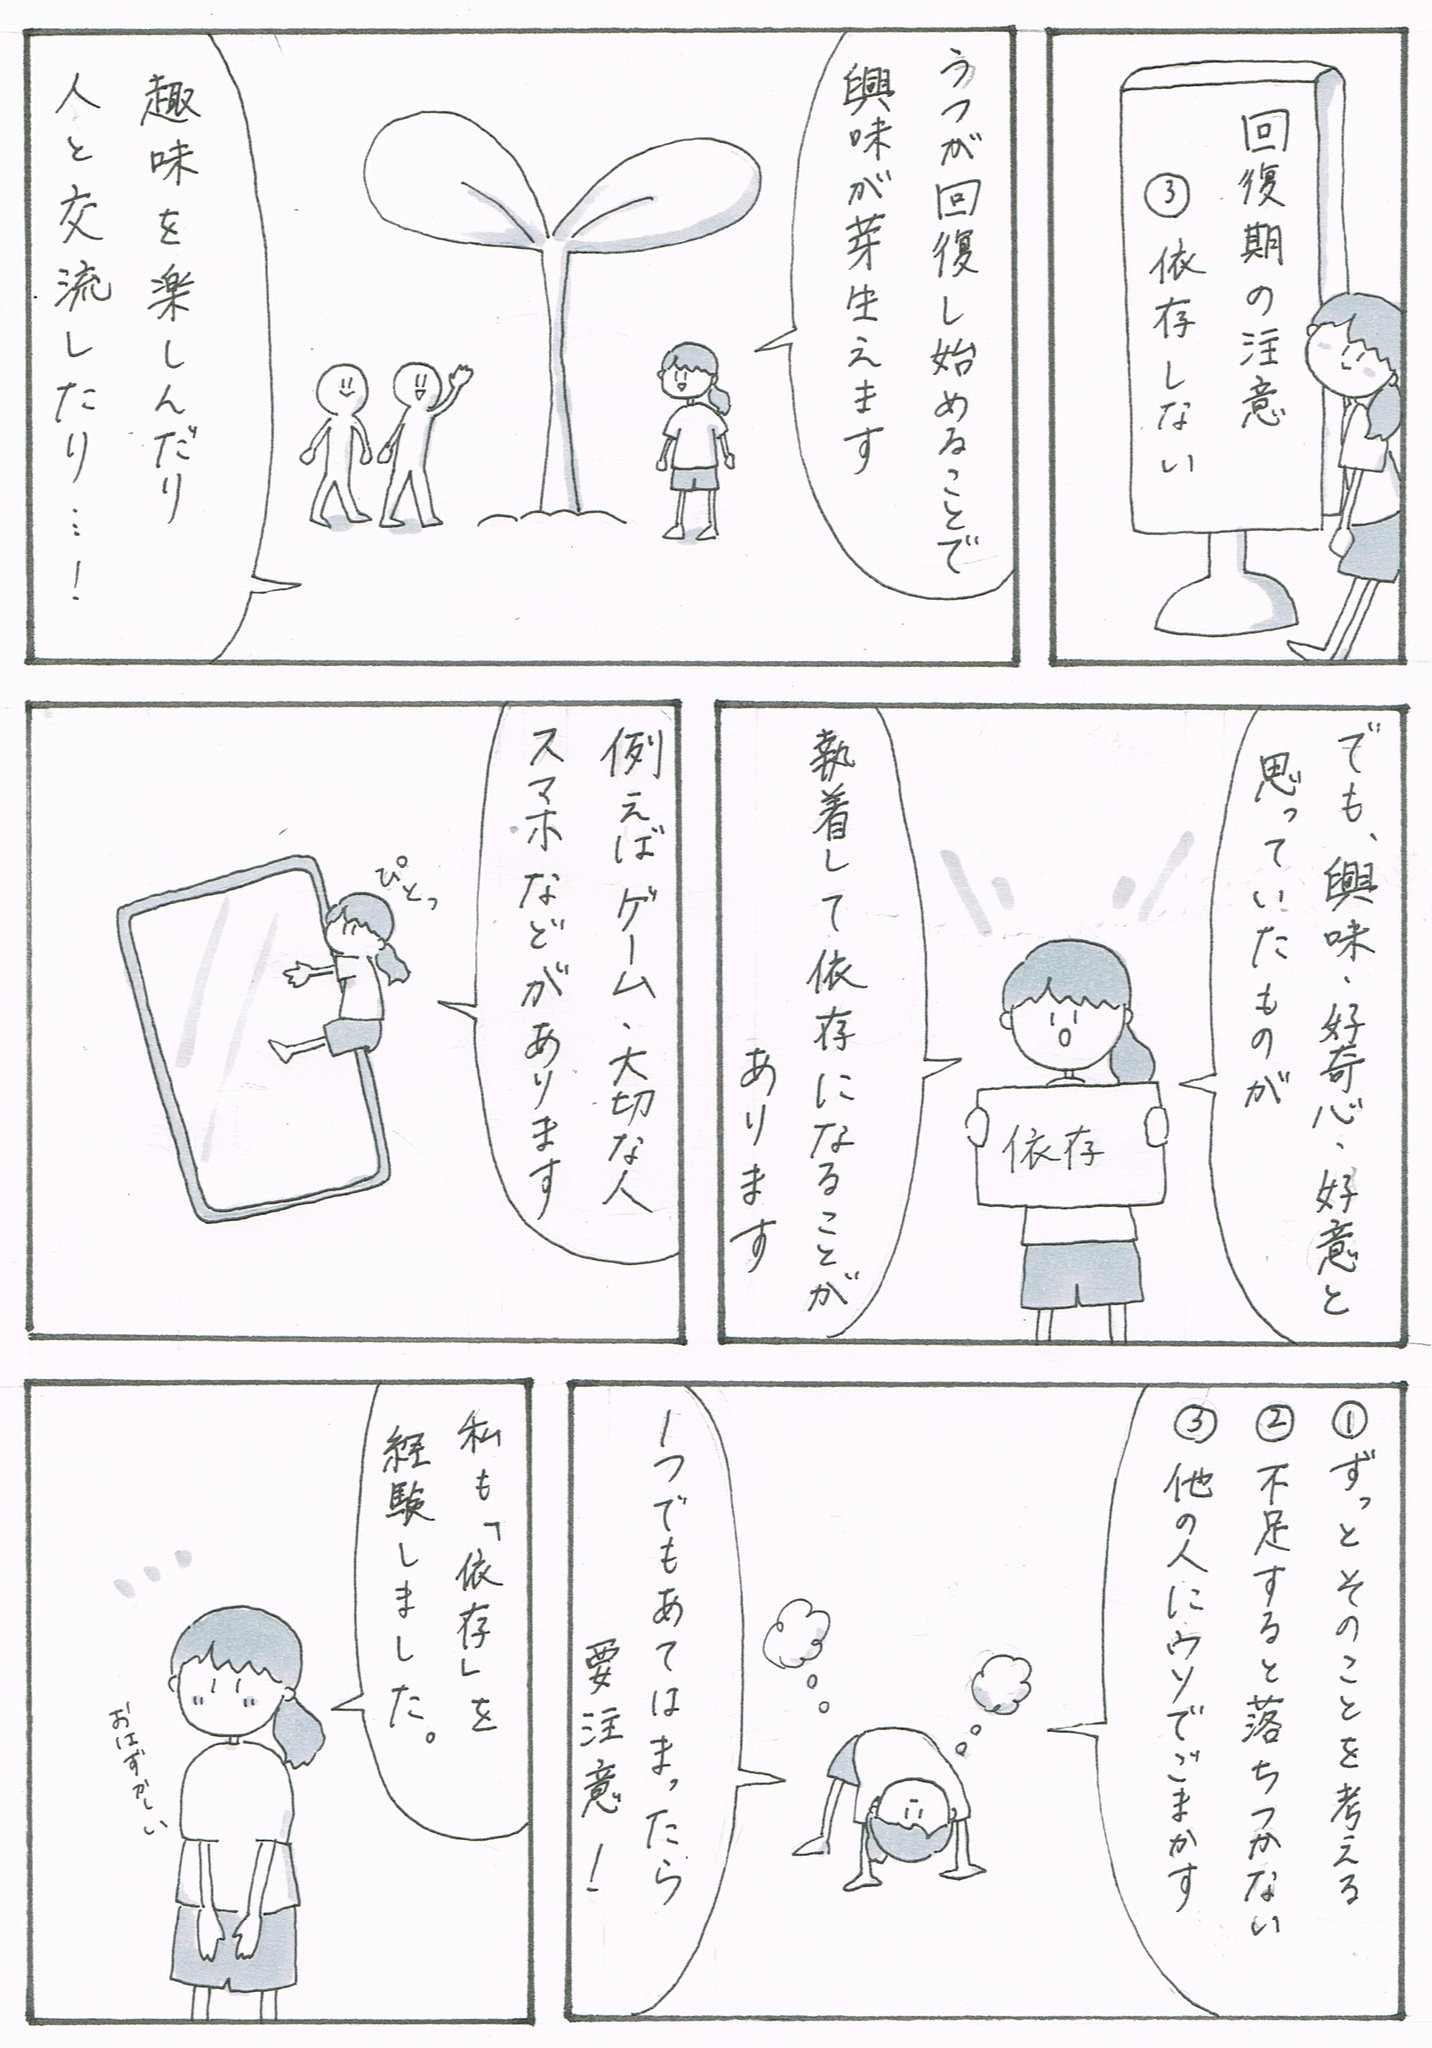 回復期の注意
③依存しない
うつが回復し始めることで
興味が芽生えます
趣味を楽しんだり
人と交流したり…!
でも、興味・好奇心・好意と
思っていたものが
依存
執着して依存になることが
あります
例えばゲーム、大切な人
スマホなどがあります
ぴとっ
①ずっとそのことを考える
②不足すると落ちつかない
③他の人にウソでごまかす
1つでもあてはまったら
要注意!
私も「依存」を
経験しました。
おはずかしい